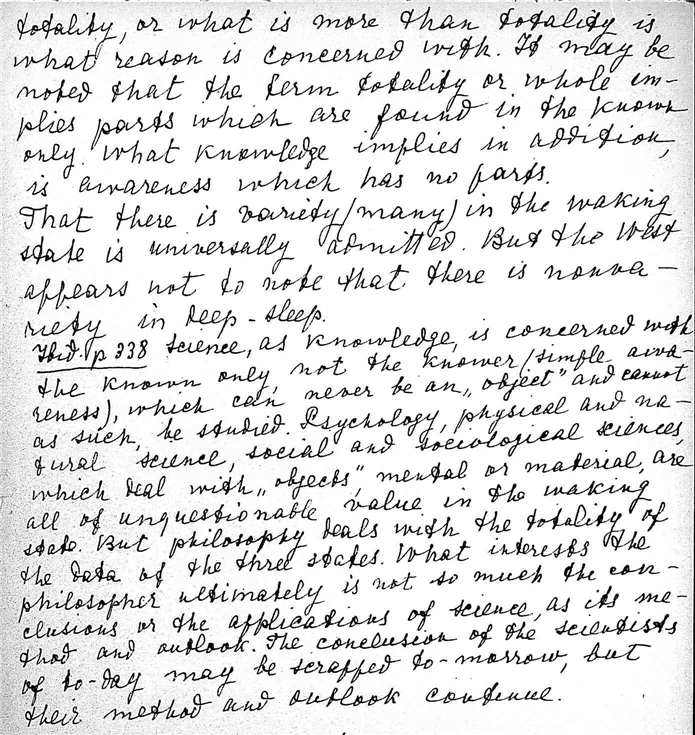 totality, or what is more than totality is
what reason is concerned with. It may be
noted that the term totality or whole im-
plies parts which are found in the known
only. what knowledge implies in addition,
is awareness which has no parts.
That there is variety (many) in the waking
state is universally admitted. But the West
appears not to note that there is nonva-
riety in deep-sleep.
Ibid. p 338 Science, as knowledge, is concerned with
the known only, not the knower (simple awa-
reness), which can never be an „object" and cannot
as such, be studied. Psychology, physical and na-
tural science, social and sociological sciences,
which deal with „objects" mental or material, are
all of unquestionable value in the waking
state. But philosophy deals with the totality of
the data of the three states. What interests the
philosopher ultimately is not so much the con-
clusions or the applications of science, as its me-
thod and outlook. The conclusion of the scientists
of to-day may be scrapped to-morrow, but
their method and outlook continue.